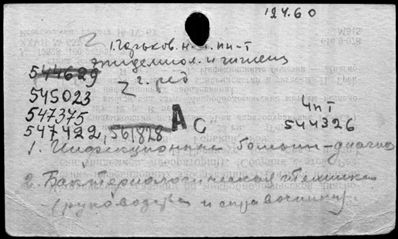 12 4.60
2
1. Горьков. н.-и. ин-т
эпидемиол. и гигиены
544629
2 г. ред
545023
547375
547422, 561828
А С
Чпт
544326
1. Инфекционные больн - диагно
2. Бактериологическая техника
(руководства и справочники)